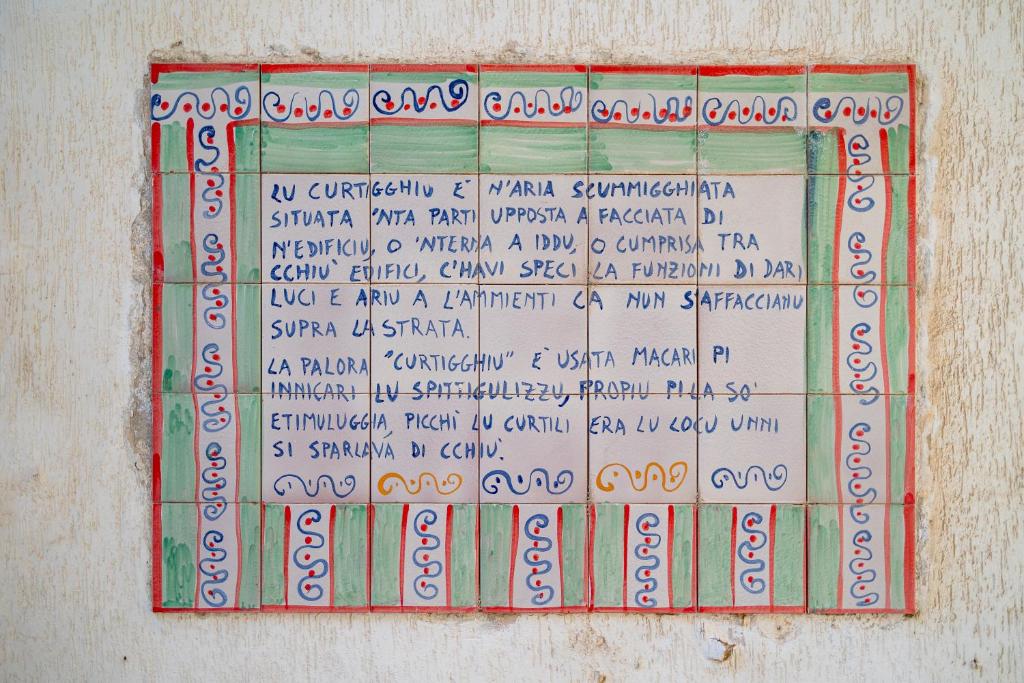 LU CURTIGGHIU È N'ARIA SCUMMIGGHIATA
SITUATA 'NTA PARTI UPPOSTA A FACCIATA DI
N'EDIFICIU, O 'NTERNA A IDDU, O CUMPRISA TRA
CCHIÙ EDIFICI, C'HAVI SPECI LA FUNZIONI DI DARI
LUCI E ARIU A L'AMMIENTI CA NUN S'AFFACCIANU
SUPRA LA STRATA.
LA PALORA "CURTIGGHIU" È USATA MACARI PI
INNICARI LU SPITTIGULIZZU, PROPIU PI LA SO'
ETIMULUGGIA, PICCHÌ LU CURTILI ERA LU LOCU UNNI
SI SPARLAVA DI CCHIÙ.